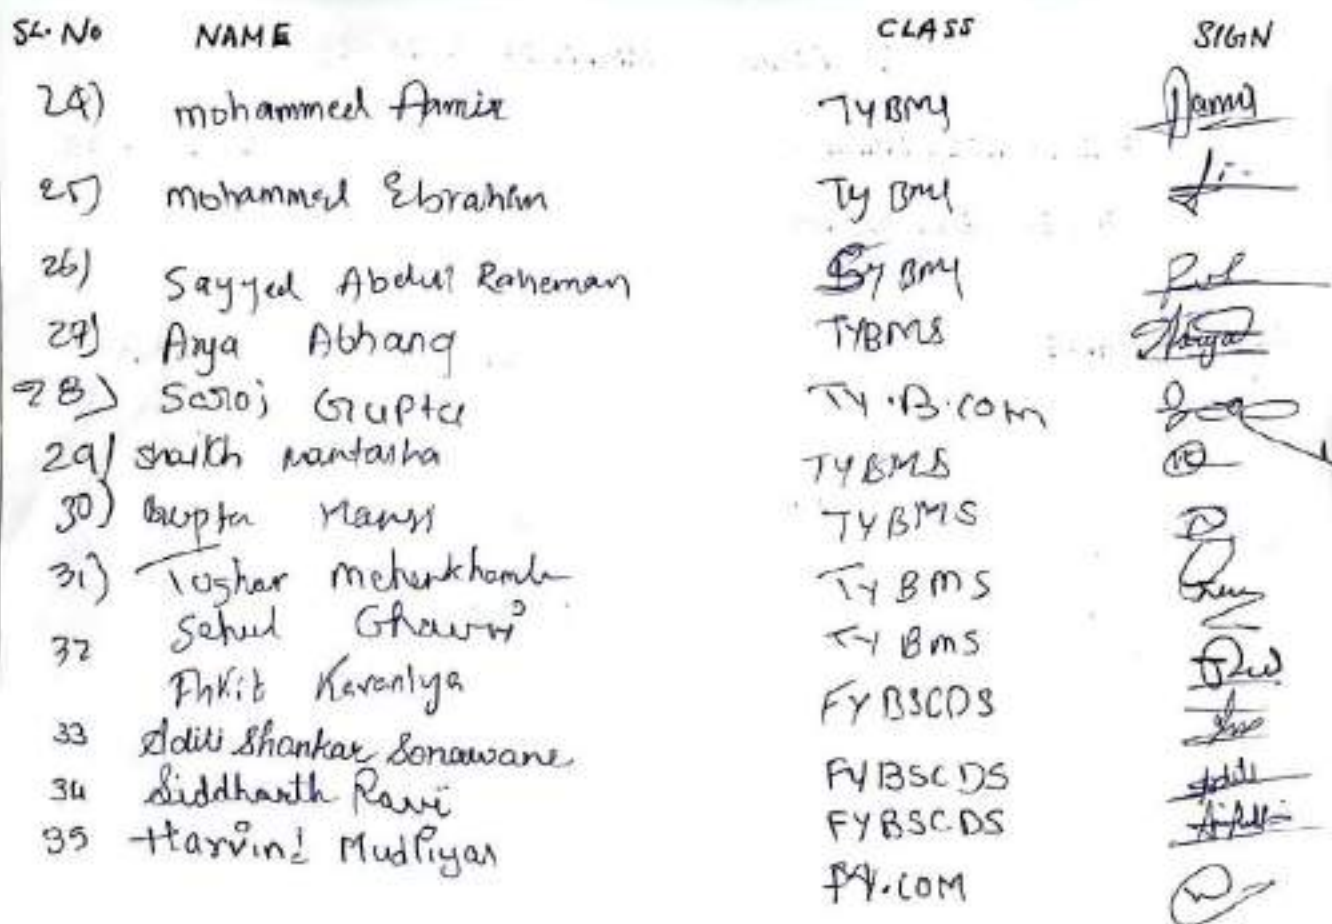 SL. No NAME CLASS SIGN
24) mohammed Aamir TYBMS
25) mohammed Ebrahim Ty BMS
26) Sayyed Abdul Raheman SY BMS
27) Arya Abhang TYBMS
28) Saroj Gupta TY.B.com
29) shaikh Mantasha TYBMS
30) Gupta Mansi TYBMS
31) Tushar TYBMS
32 Sahil TY BMS
Ankit FYBSCDS
33 Aditi Shankar Sonawane FYBSCDS
34 Siddharth Ravi FYBSCDS
35 Harvind Mudliyar FY.COM